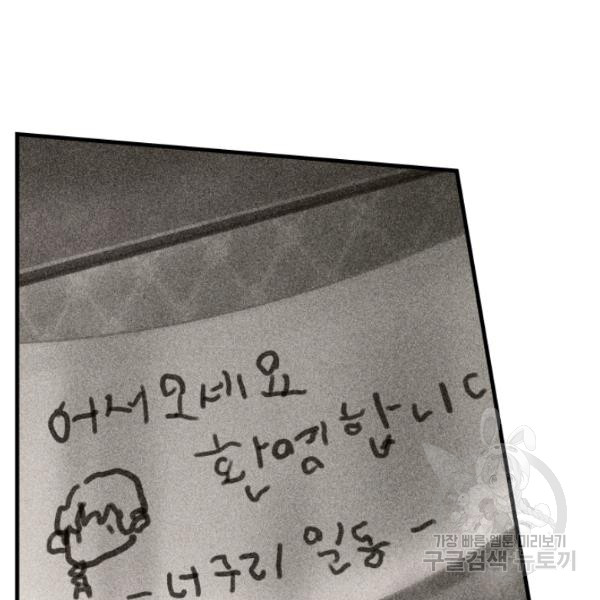 어서오세요
환영합니다
- 너구리 일동 -
가장 빠른 웹툰 미리보기
구글검색 뉴토끼